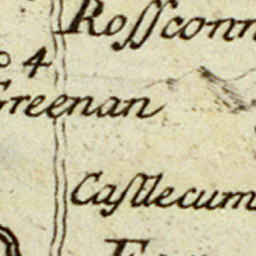 Roſſconn
o 4
Greenan
Caſtlecum